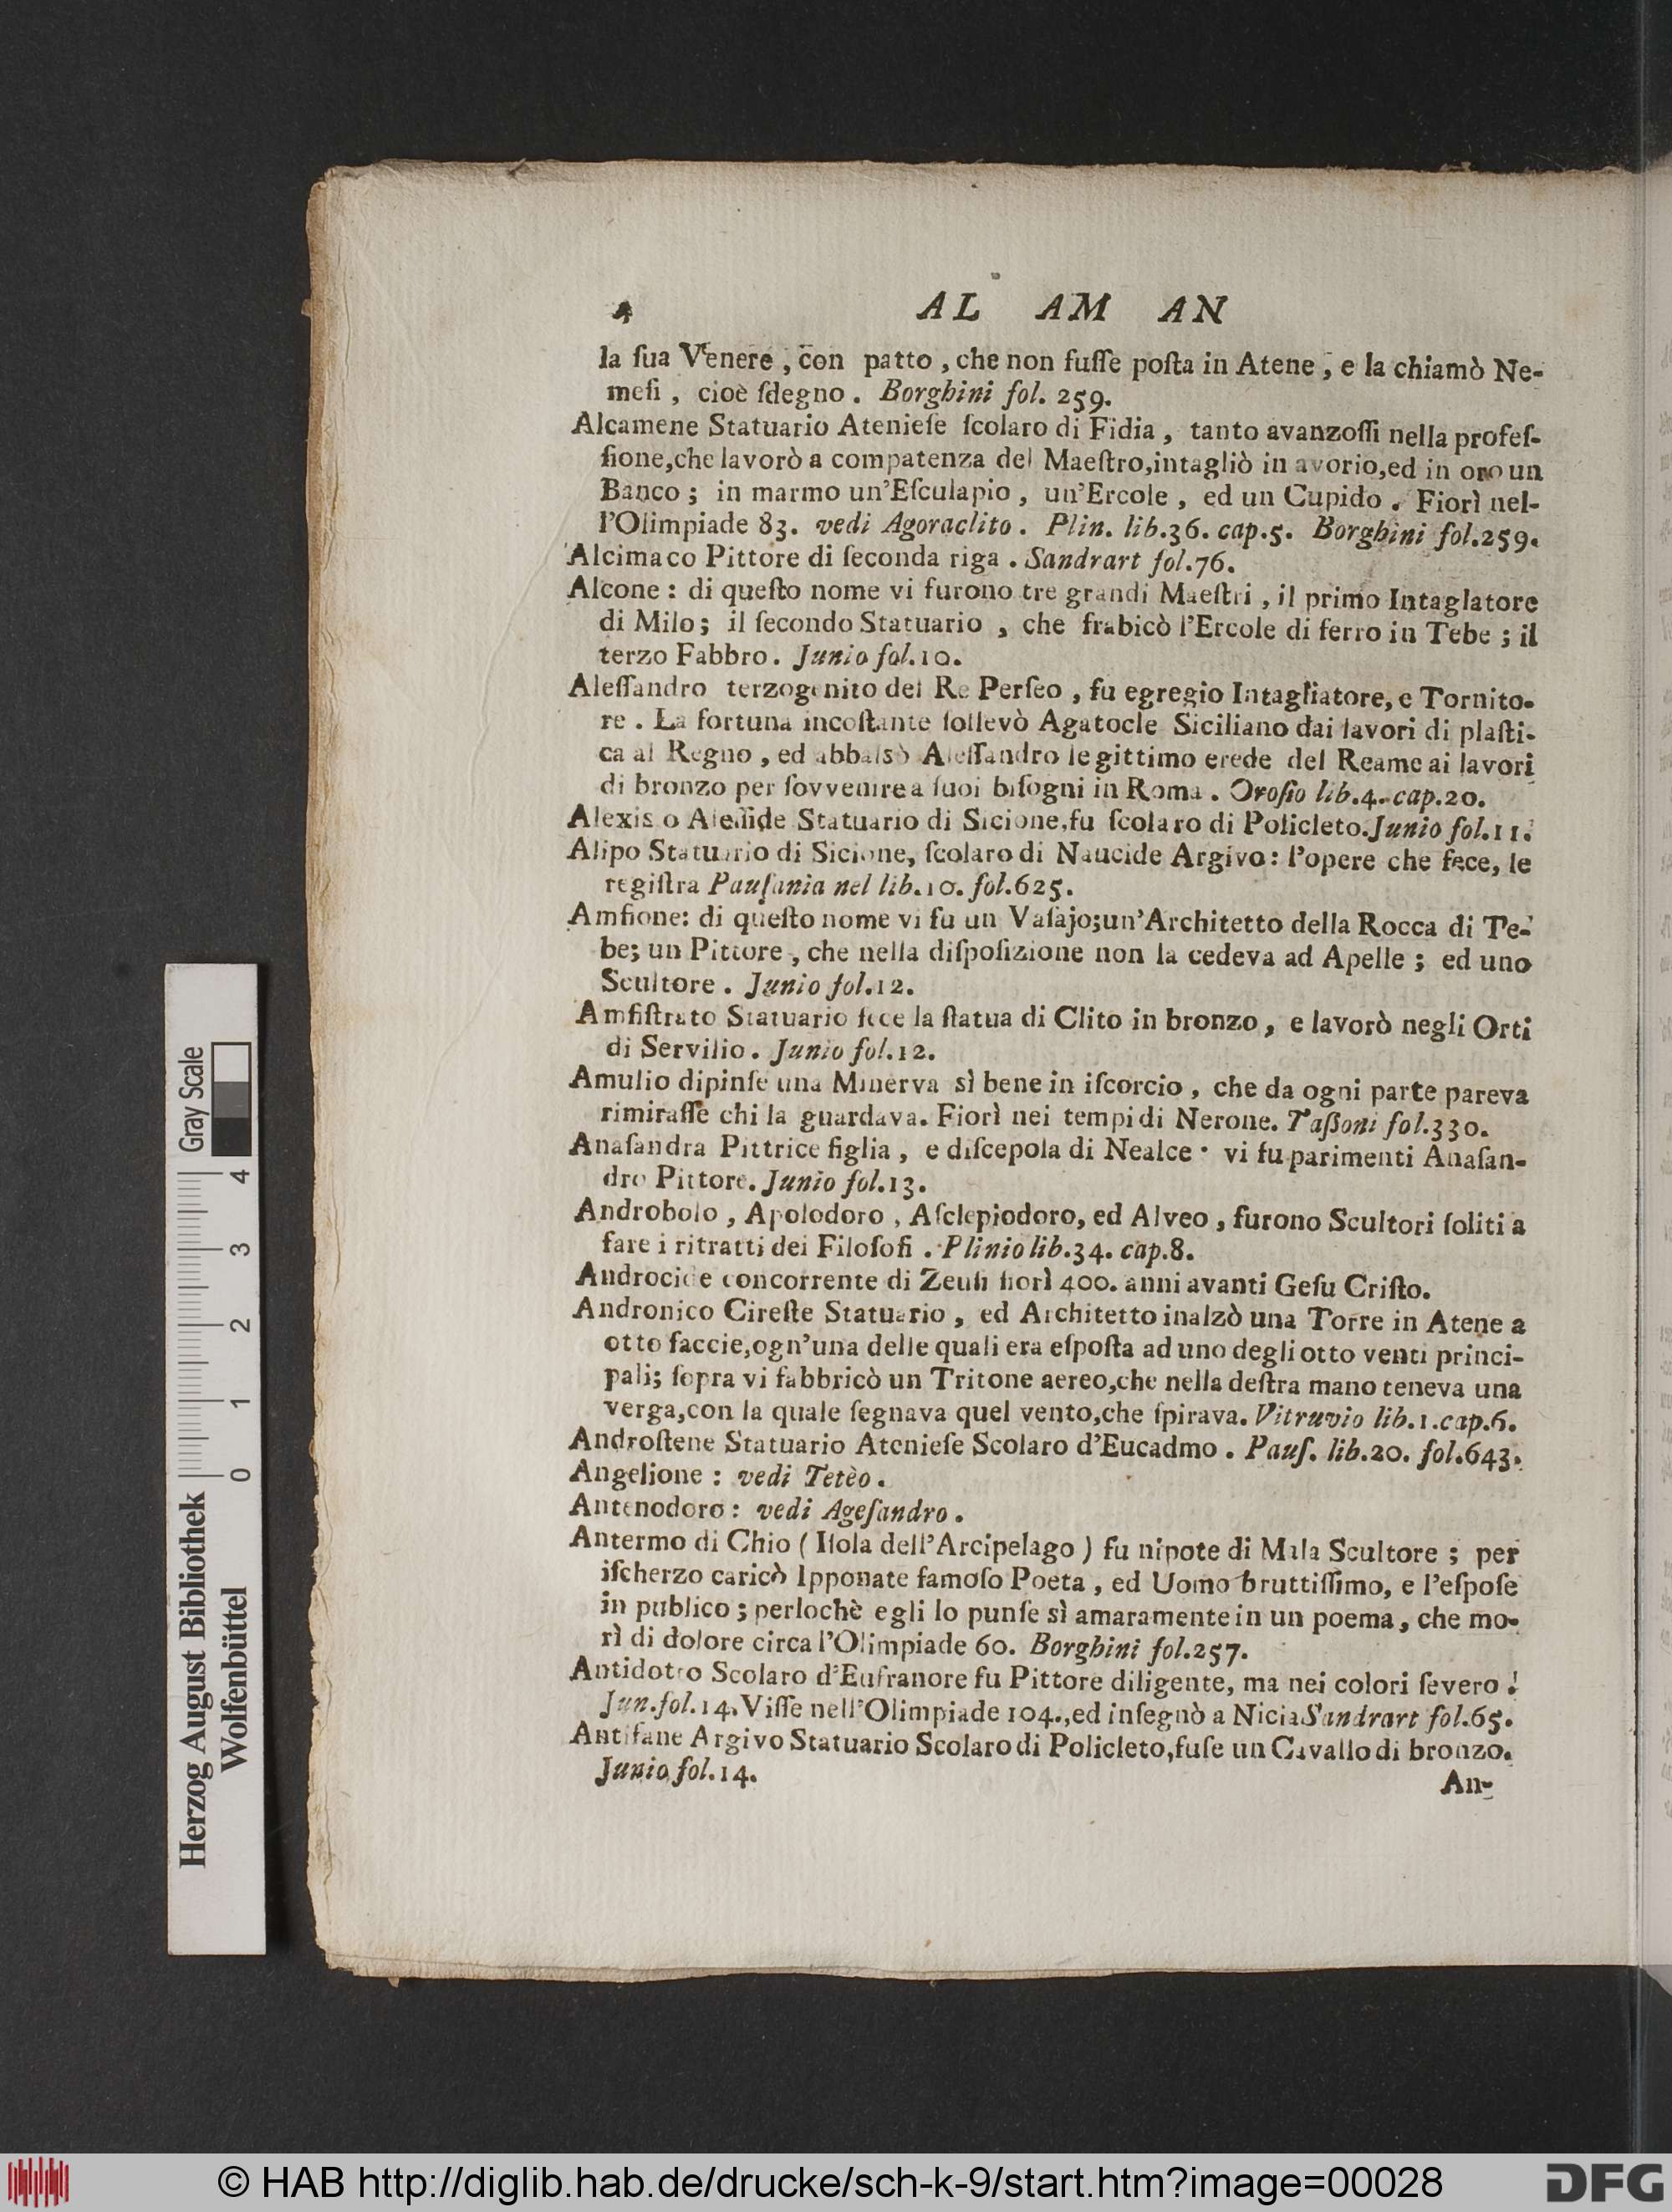 4 AL AM AN
la ſua Venere , con patto , che non fuſſe poſta in Atene , e la chiamò Ne-
meſi , cioè ſdegno . Borghini fol. 259.
Alcamene Statuario Atenieſe ſcolaro di Fidia , tanto avanzoſſi nella profeſ-
ſione,che lavorò a compatenza del Maeſtro,intagliò in avorio,ed in oro un
Banco ; in marmo un'Eſculapio , un'Ercole , ed un Cupido . Fiorì nel-
l'Olimpiade 83. vedi Agoraclito . Plin. lib.36. cap.5. Borghini fol.259.
Alcimaco Pittore di ſeconda riga . Sandrart fol.76.
Alcone : di queſto nome vi furono tre grandi Maeſtri , il primo Intaglatore
di Milo ; il ſecondo Statuario , che frabicò l'Ercole di ferro in Tebe ; il
terzo Fabbro . Junio fol.10.
Aleſſandro terzogenito del Re Perſeo , fu egregio Intagliatore, e Tornito-
re . La fortuna incoſtante ſollevò Agatocle Siciliano dai lavori di plaſti-
ca al Regno , ed abbalsò Aleſſandro legittimo erede del Reame ai lavori
di bronzo per ſovvenire a ſuoi biſogni in Roma . Oroſio lib.4. cap.20.
Alexis o Aleſſide Statuario di Sicione,fu ſcolaro di Policleto.Junio fol.11.
Alipo Statuario di Sicione, ſcolaro di Naucide Argivo: l'opere che fece, le
regiſtra Pauſania nel lib.10. fol.625.
Amfione: di queſto nome vi fu un Vaſajo;un'Architetto della Rocca di Te-
be; un Pittore , che nella diſpoſizione non la cedeva ad Apelle ; ed uno
Scultore . Junio fol.12.
Amfiſtrato Statuario fece la ſtatua di Clito in bronzo , e lavorò negli Orti
di Servilio . Junio fol.12.
Amulio dipinſe una Minerva sì bene in iſcorcio , che da ogni parte pareva
rimiraſſe chi la guardava. Fiorì nei tempi di Nerone. Taſſoni fol.330.
Anaſandra Pittrice figlia , e diſcepola di Nealce · vi fu parimenti Anaſan-
dro Pittore. Junio fol.13.
Androbolo , Apolodoro , Aſclepiodoro, ed Alveo , furono Scultori ſoliti a
fare i ritratti dei Filoſofi . Plinio lib.34. cap.8.
Androcide concorrente di Zeuſi fiorì 400. anni avanti Geſu Criſto.
Andronico Cireſte Statuario , ed Architetto inalzò una Torre in Atene a
otto faccie,ogn'una delle quali era eſpoſta ad uno degli otto venti princi-
pali; ſopra vi fabbricò un Tritone aereo,che nella deſtra mano teneva una
verga,con la quale ſegnava quel vento,che ſpirava. Vitruvio lib.1.cap.6.
Androſtene Statuario Atenieſe Scolaro d'Eucadmo . Pauſ. lib.20. fol.643.
Angelione : vedi Tetèo .
Antenodoro : vedi Ageſandro .
Antermo di Chio ( Iſola dell'Arcipelago ) fu nipote di Mala Scultore ; per
iſcherzo caricò Ipponate famoſo Poeta , ed Uomo bruttiſſimo, e l'eſpoſe
in publico ; perlochè egli lo punſe sì amaramente in un poema , che mo-
rì di dolore circa l'Olimpiade 60. Borghini fol.257.
Antidotto Scolaro d'Eufranore fu Pittore diligente, ma nei colori ſevero .
Jun.fol.14.Viſſe nell'Olimpiade 104.,ed inſegnò a Nicia Sandrart fol.65.
Antifane Argivo Statuario Scolaro di Policleto,fuſe un Cavallo di bronzo.
Junio fol.14.
An-
Gray Scale
4 3 2 1 0
Herzog August Bibliothek
Wolfenbüttel
© HAB http://diglib.hab.de/drucke/sch-k-9/start.htm?image=00028
DFG